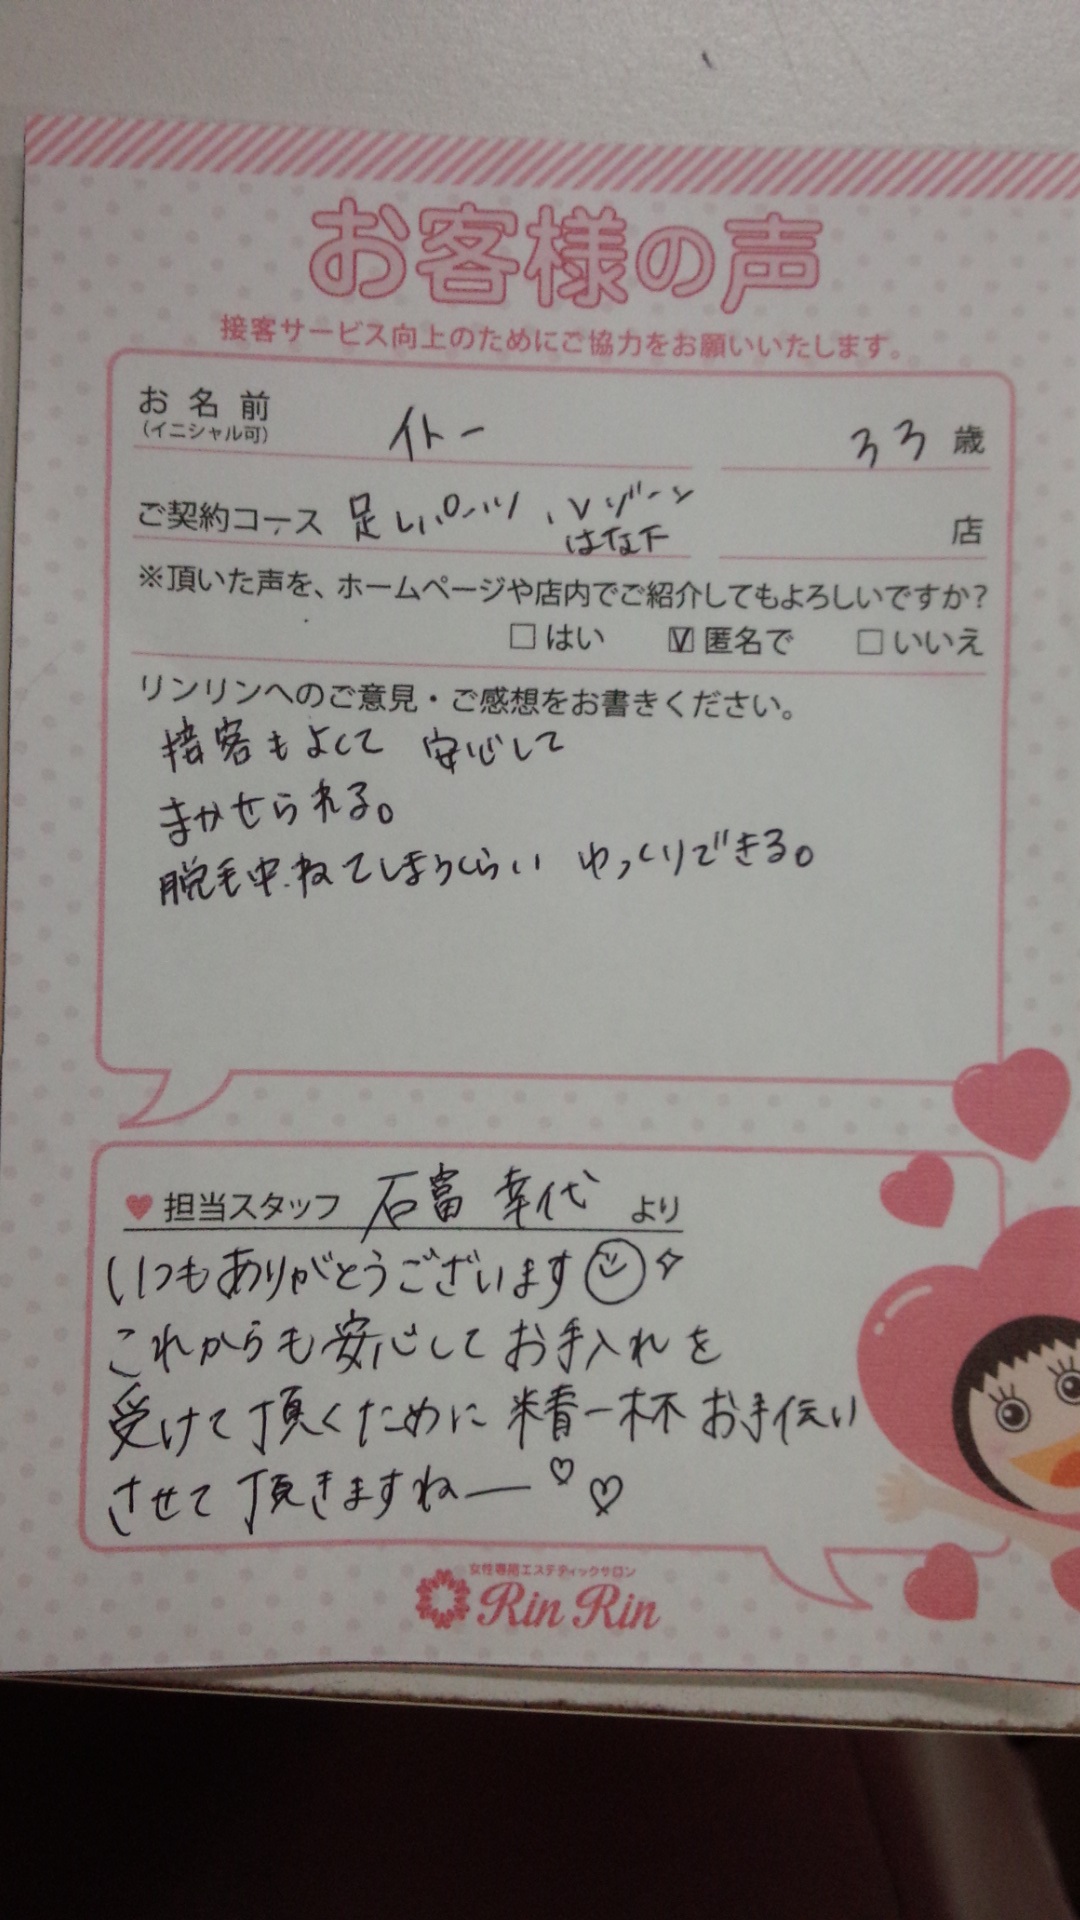 お客様の声
接客サービス向上のためにご協力をお願いいたします。
お名前 イトー 33歳
(イニシャル可)
ご契約コース 足しパーツ、Vゾーン 店
はな下
※頂いた声を、ホームページや店内でご紹介してもよろしいですか?
□はい ☑匿名で □いいえ
リンリンへのご意見・ご感想をお書きください。
接客もよくて 安心して
まかせられる。
脱毛中ねてしまうくらい ゆっくりできる。
♥担当スタッフ 石富 幸代 より
いつもありがとうございます
これからも安心してお手入れを
受けて頂くために精一杯お手伝い
させて頂きますねー♡♡
女性専用エステティックサロン
Rin Rin